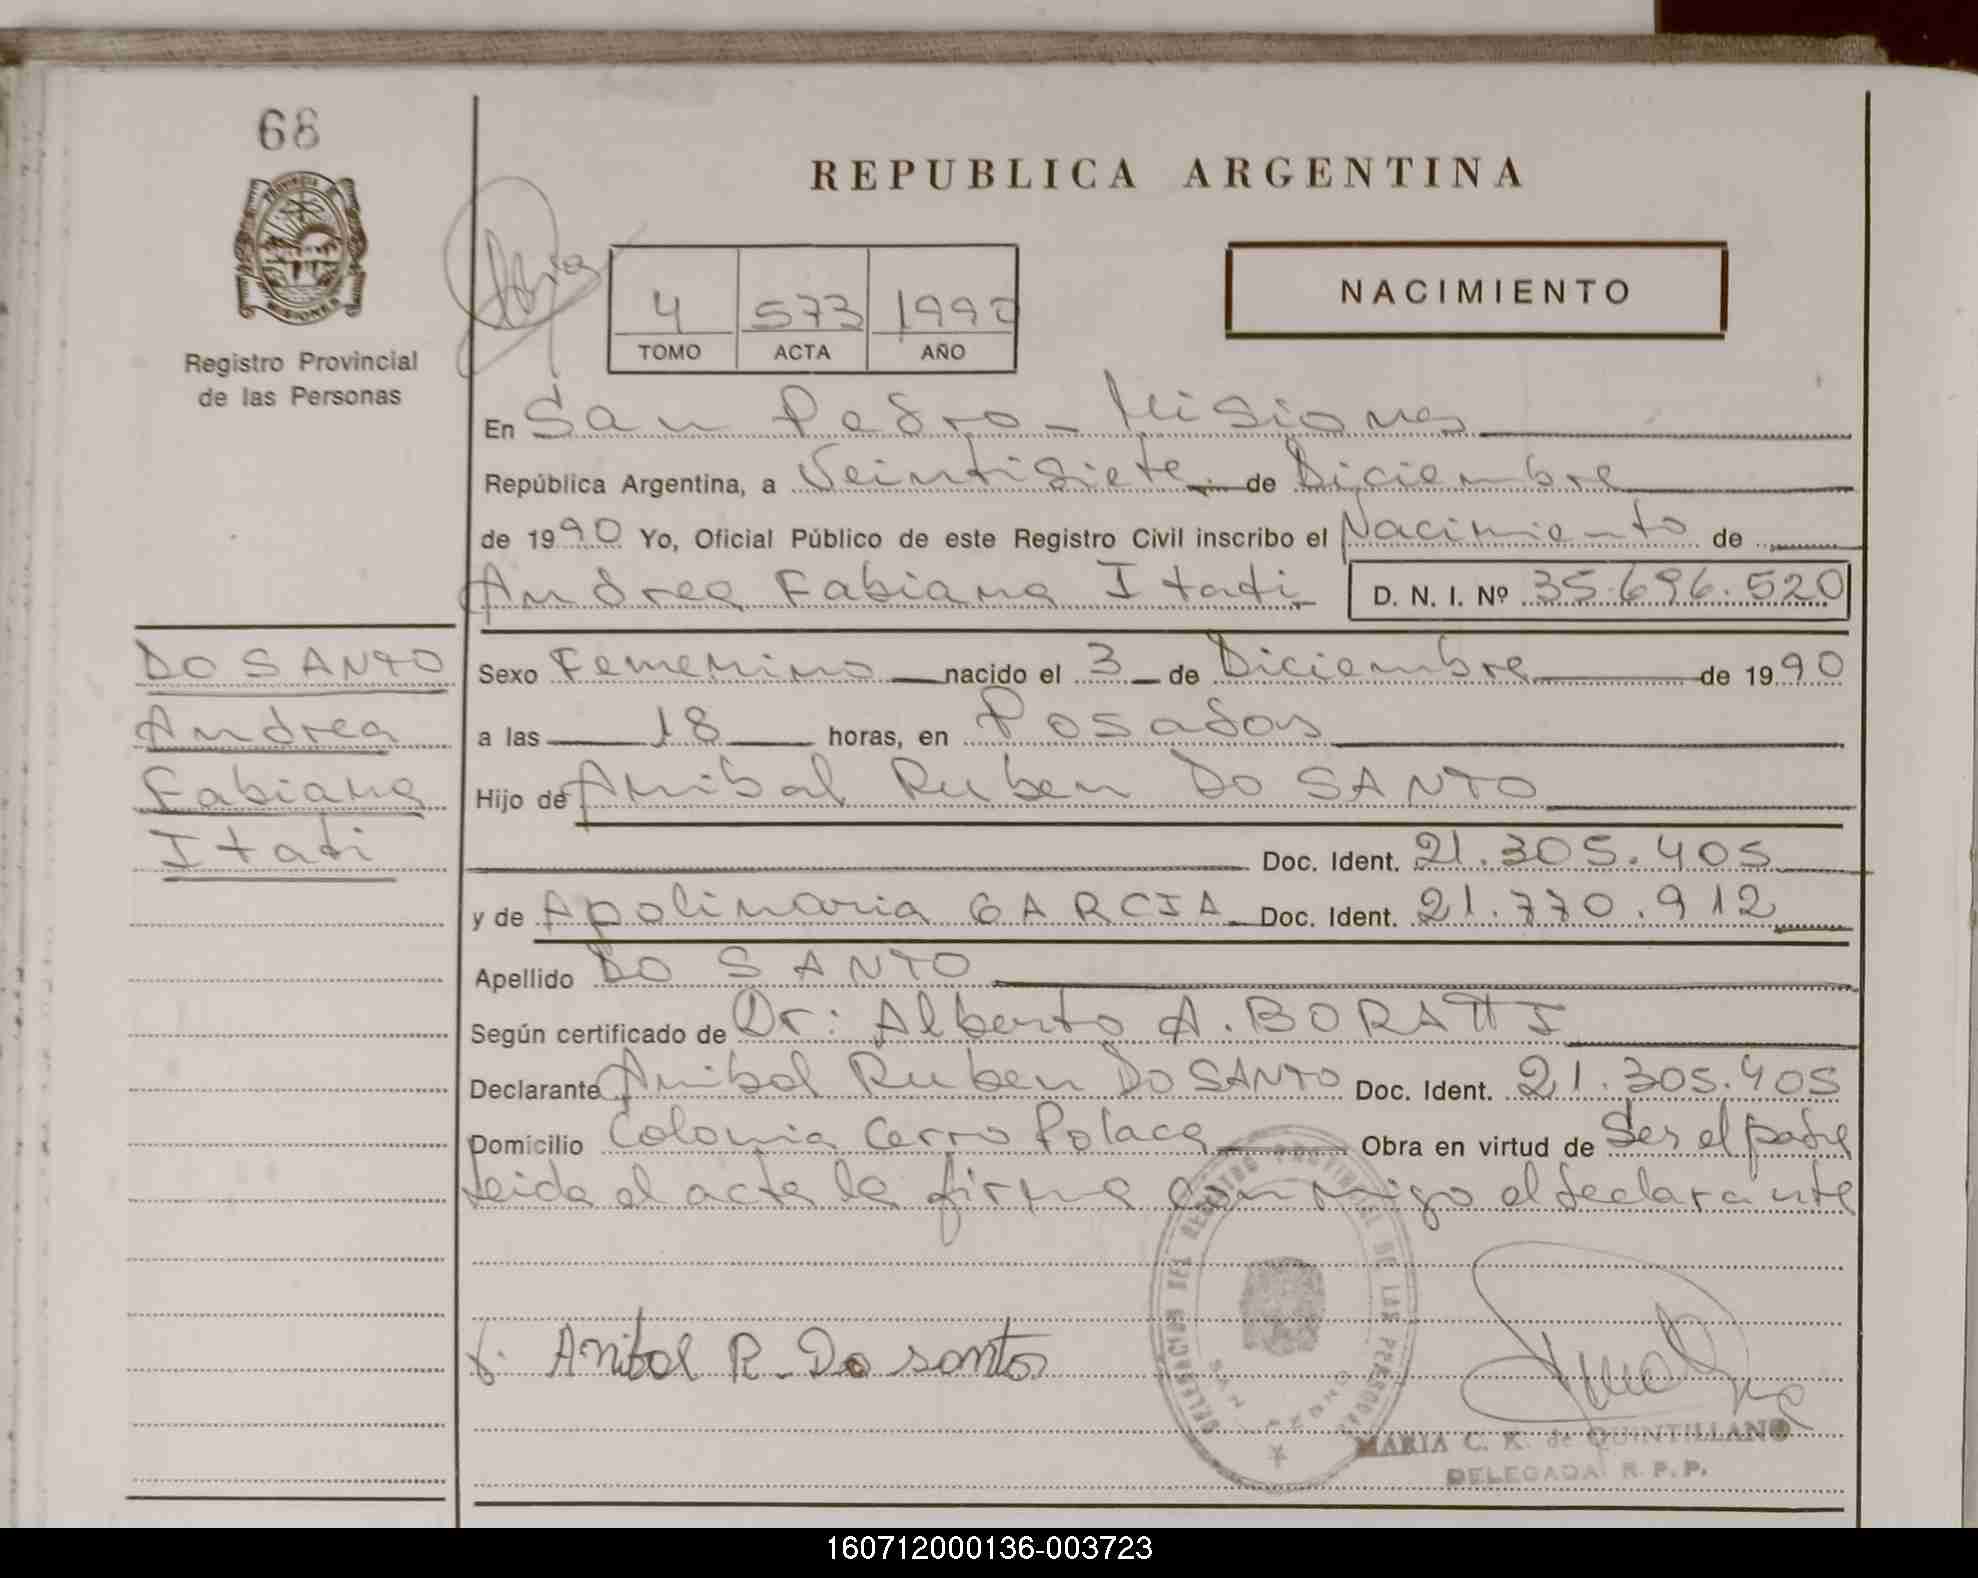 68
PROVINCIA
MISIONES
Registro Provincial
de las Personas
REPUBLICA ARGENTINA
4 573 1990
TOMO ACTA AÑO
NACIMIENTO
En San Pedro - Misiones
República Argentina, a Veintisiete de Diciembre
de 1990 Yo, Oficial Público de este Registro Civil inscribo el Nacimiento de
Andrea Fabiana Itati D. N. I. Nº 35.696.520
DO SANTO
Andrea
Fabiana
Itati
Sexo Femenino nacido el 3 de Diciembre de 1990
a las 18 horas, en Posadas
Hijo de Anibal Ruben DO SANTO
Doc. Ident. 21.305.405
y de Apolinaria GARCIA Doc. Ident. 21.770.912
Apellido DO SANTO
Según certificado de Dr: Alberto A. BORATTI
Declarante Anibal Ruben DO SANTO Doc. Ident. 21.305.405
Domicilio Colonia Cerro Polaca Obra en virtud de Ser el padre
leida el acta la firma conmigo el declarante
DELEGACION DEL REGISTRO PROVINCIAL DE LAS PERSONAS
SAN PEDRO
Anibal R. Do santos
MARIA C. K. de QUINTILLANO
DELEGADA R. P. P.
160712000136-003723